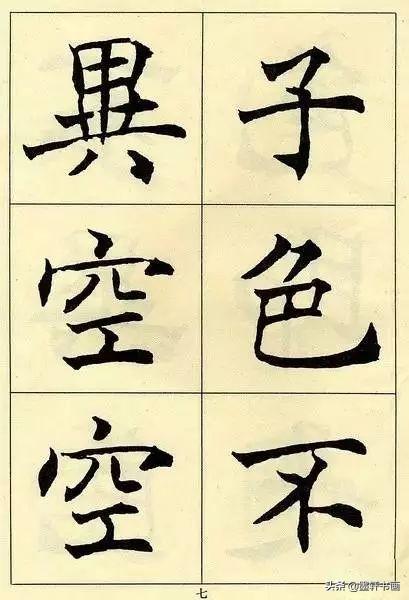 子色不
異空空
七
头条@墨轩书画